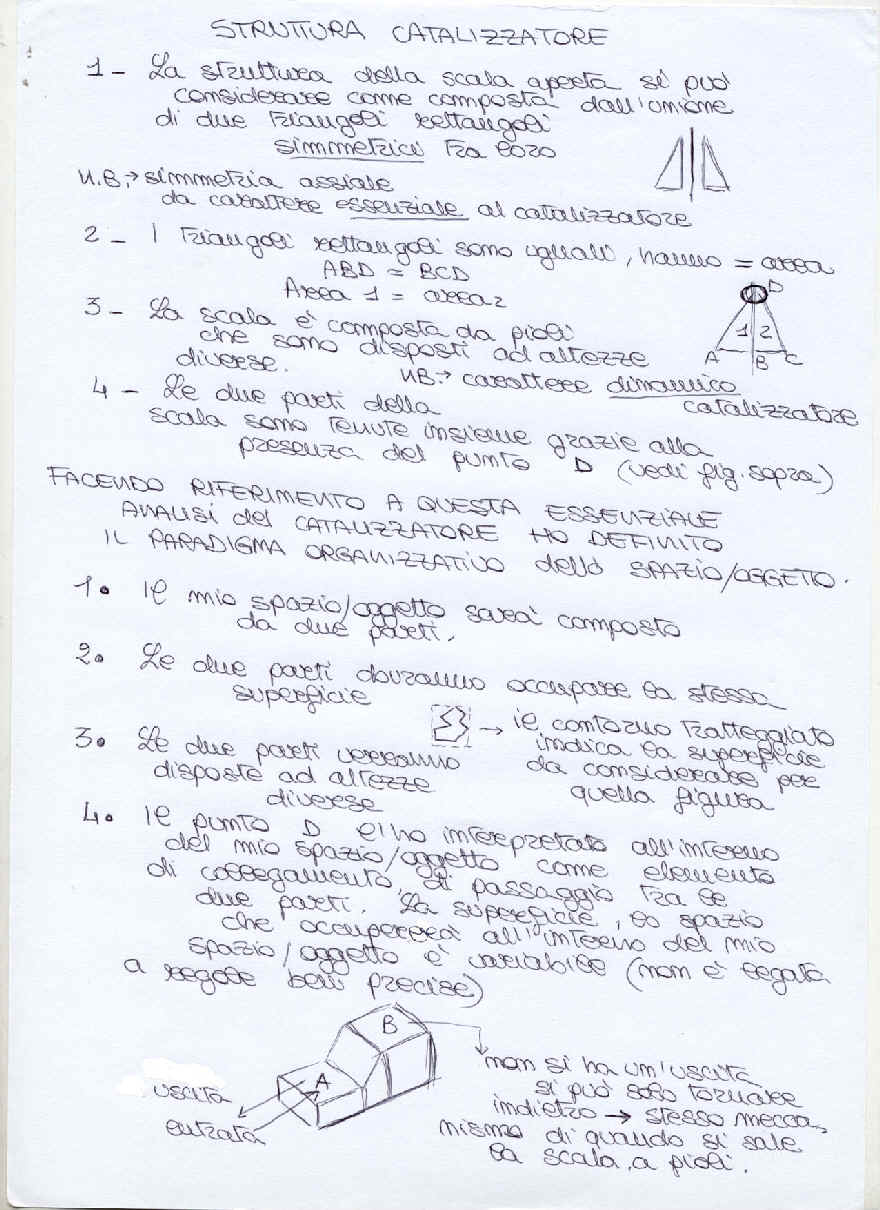 STRUTTURA CATALIZZATORE
1 - La struttura della scala aperta si può
considerare come composta dall'unione
di due triangoli rettangoli
simmetrici tra loro
N.B.→ simmetria assiale
da carattere essenziale al catalizzatore
2 - I triangoli rettangoli sono uguali, hanno = area
ABD = BCD
Area 1 = area 2
D
3 - La scala è composta da pioli
che sono disposti ad altezze
diverse.
1 2
A B C
NB.→ carattere dinamico
catalizzatore
4 - Le due parti della
scala sono tenute insieme grazie alla
presenza del punto D (vedi fig. sopra)
FACENDO RIFERIMENTO A QUESTA ESSENZIALE
ANALISI del CATALIZZATORE HO DEFINITO
IL PARADIGMA ORGANIZZATIVO dello SPAZIO/OGGETTO.
1. Il mio spazio/oggetto sarà composto
da due parti.
2. Le due parti dovranno occupare la stessa
superficie
→ il contorno tratteggiato
indica la superficie
da considerare per
quella figura
3. Le due parti verranno
disposte ad altezze
diverse
4. Il punto D l'ho interpretato all'interno
del mio spazio/oggetto come elemento
di collegamento, di passaggio tra le
due parti. La superficie, lo spazio
che occuperà all'interno del mio
spazio/oggetto è variabile (non è legata
a regole ben precise)
B
A
uscita
entrata
non si ha un'uscita
si può solo tornare
indietro → stesso mecca,
nismo di quando si sale
la scala a pioli.